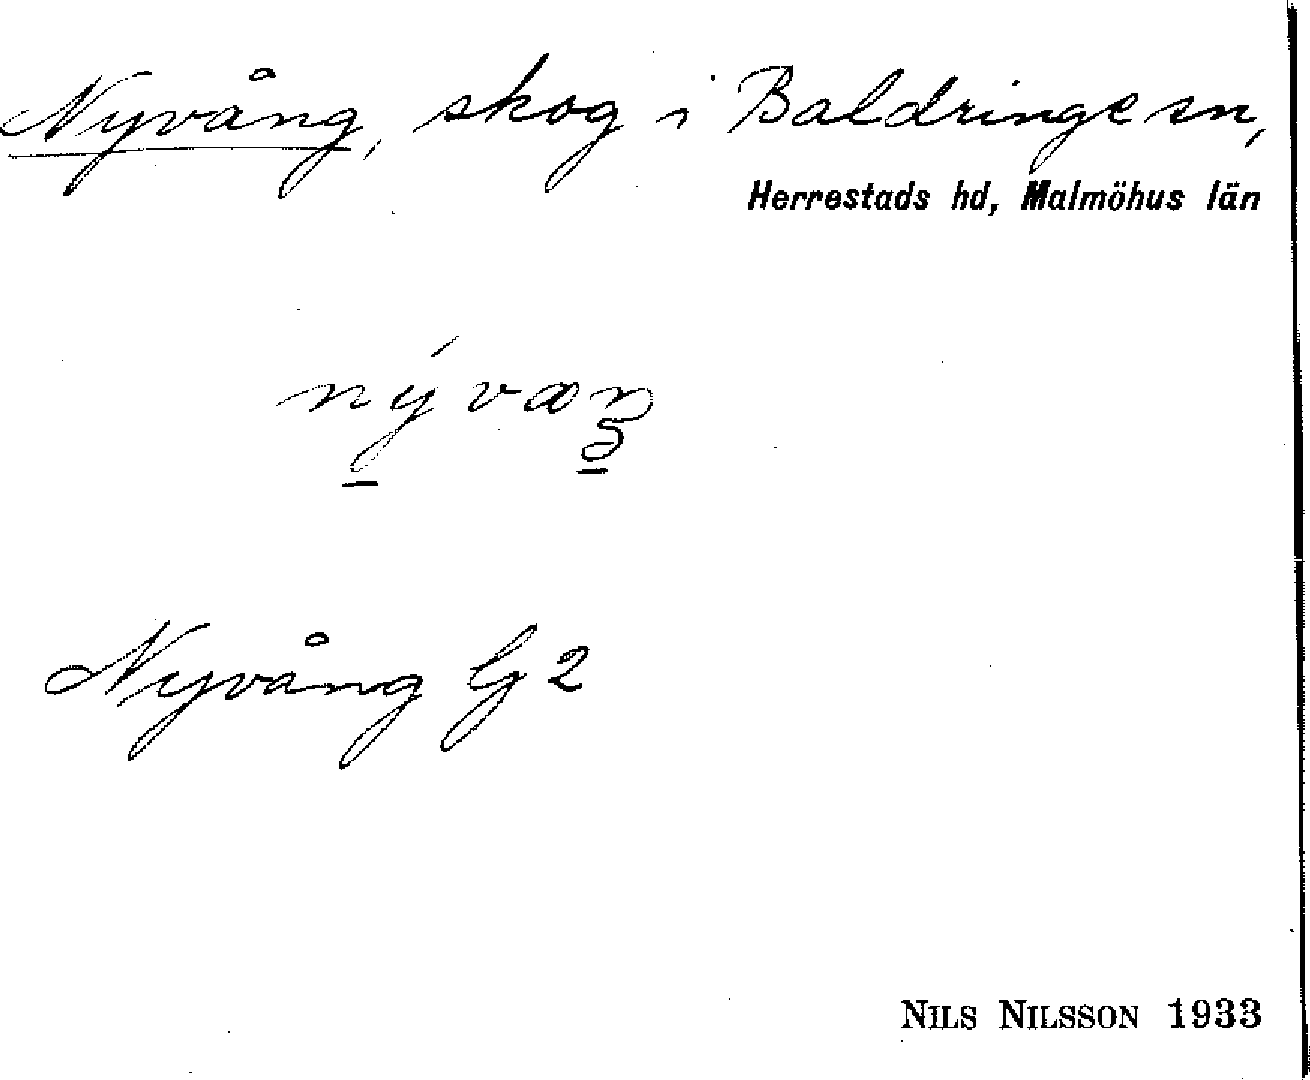 Nyvång, skog i Baldringe sn,
Herrestads hd, Malmöhus län
Nyvång G2
NILS NILSSON 1933